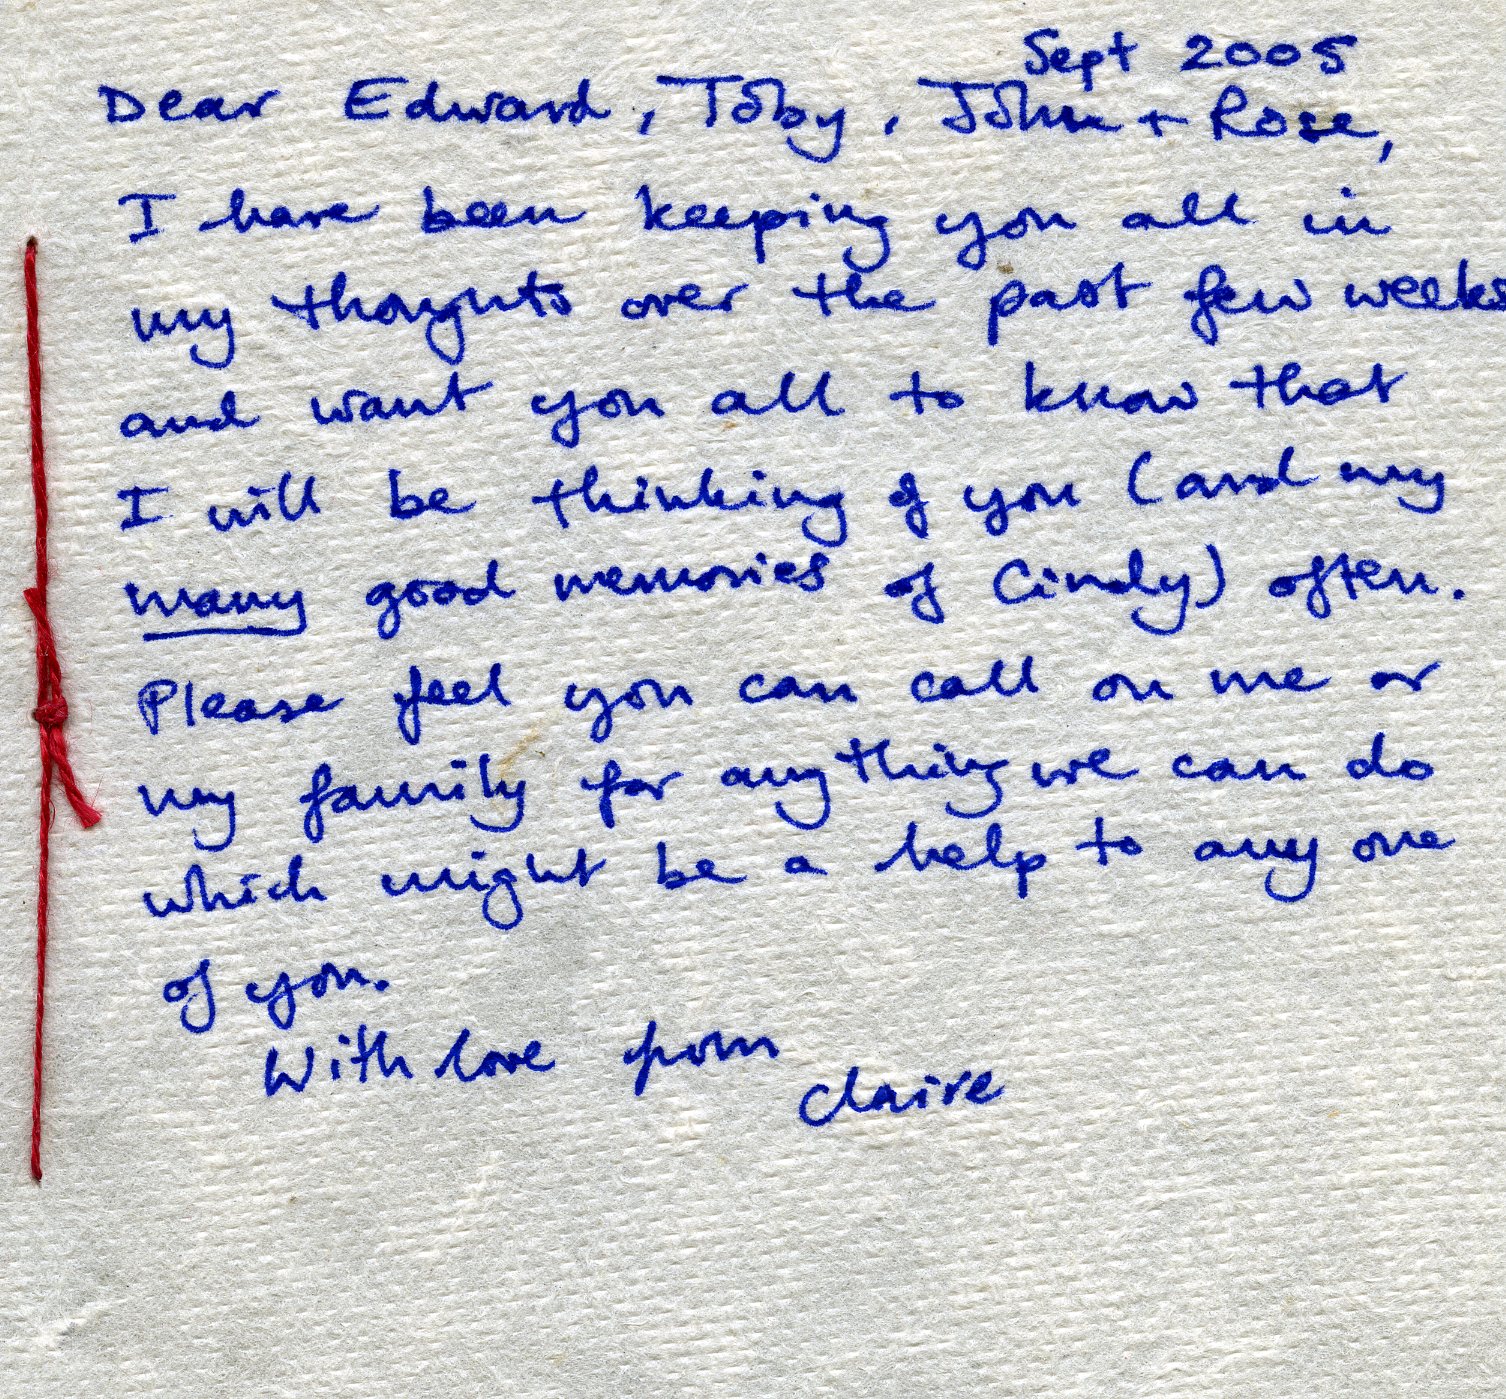 Sept 2005
Dear Edward, Toby, John + Rose,
I have been keeping you all in
my thoughts over the past few weeks
and want you all to know that
I will be thinking of you (and my
many good memories of Cindy) often.
Please feel you can call on me or
my family for anything we can do
which might be a help to any one
of you.
With love from
Claire